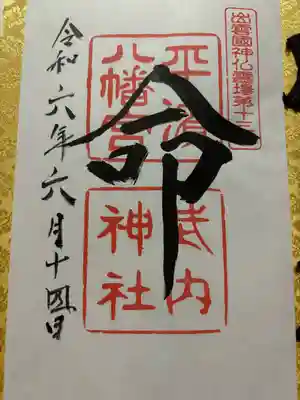 出雲國神仏霊場第十二
平濱
八幡宮
武内
神社
命
令和六年六月十四日